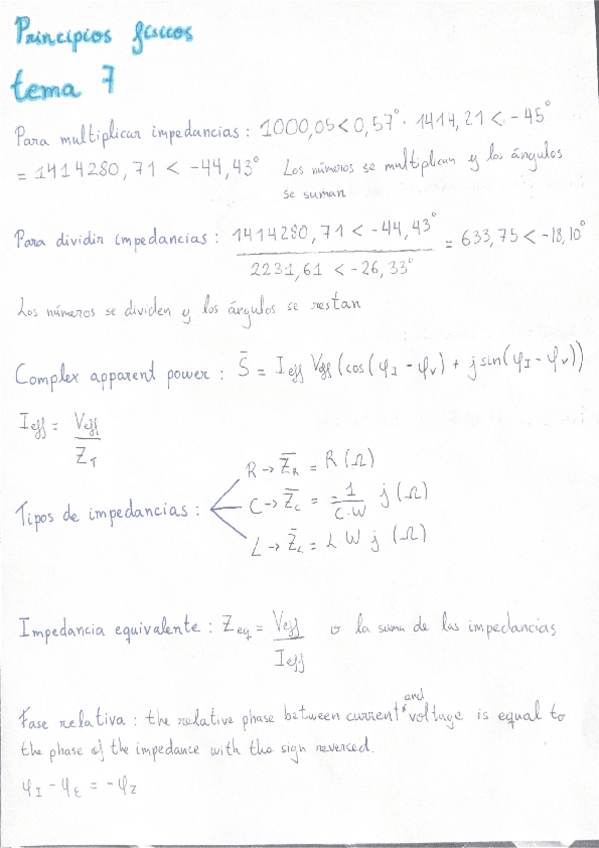 Principios físicos
tema 7
Para multiplicar impedancias : 1000,05 < 0,57° · 1414,21 < -45°
= 1414280,71 < -44,43° Los números se multiplican y los ángulos
se suman
Para dividir impedancias : 1414280,71 < -44,43° / 2231,61 < -26,33° = 633,75 < -18,10°
Los números se dividen y los ángulos se restan
Complex apparent power : S̄ = Ieff Veff (cos(φI - φV) + j sin(φI - φV))
Ieff = Veff / ZT
R → Z̄R = R (Ω)
Tipos de impedancias : C → Z̄C = -1 / C·W j (Ω)
L → Z̄L = L W j (Ω)
Impedancia equivalente : Zeq = Veff / Ieff o la suma de las impedancias
Fase relativa : the relative phase between current and voltage is equal to
the phase of the impedance with the sign reversed.
φI - φE = -φZ